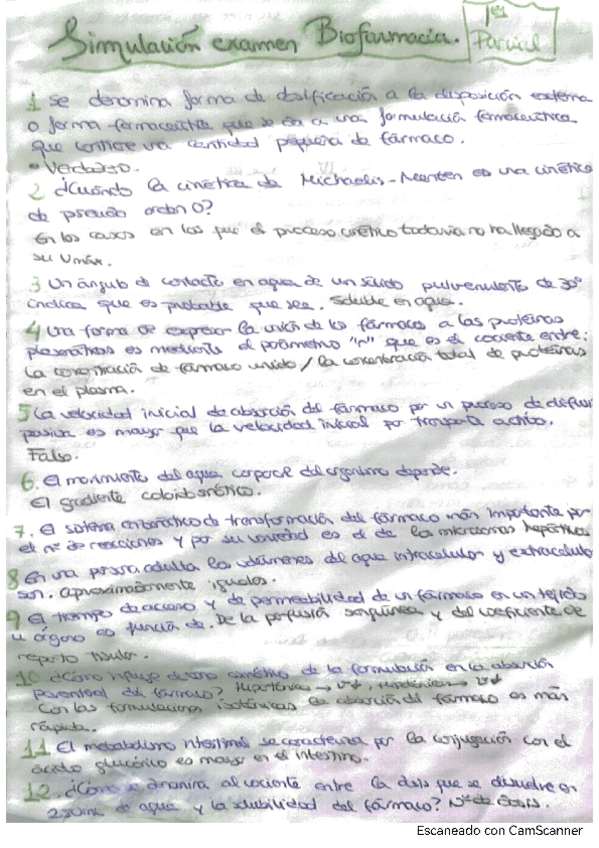 Simulación examen Biofarmacia. 1er Parcial
1 Se denomina forma de dosificación a la disposición externa
o forma farmacéutica que se da a una formulación farmacéutica
que contiene una cantidad pequeña de fármaco.
• Verdadero.
2 ¿Cuándo la cinética de Michaelis-Menten es una cinética
de pseudo orden 0?
En los casos en los que el proceso cinético todavía no ha llegado a
su Vmáx.
3 Un ángulo de contacto en agua de un sólido pulverulento de 30°
indica que es probable que sea. Soluble en agua.
4 Una forma de expresar la unión de los fármacos a las proteínas
plasmáticas es mediante el parámetro "r" que es el cociente entre:
La concentración de fármaco unido / la concentración total de proteínas
en el plasma.
5 La velocidad inicial de absorción del fármaco por un proceso de difusión
pasiva es mayor que la velocidad inicial por transporte activo.
Falso.
6. El movimiento del agua corporal del organismo depende.
El gradiente coloidosmótico.
7. El sistema enzimático de transformación del fármaco más importante por
el nº de reacciones y por su variedad es el de los microsomas hepáticos
8 En una persona adulta los volúmenes del agua intracelular y extracelular
son. Aproximadamente iguales.
9 El tiempo de acceso y de permeabilidad de un fármaco en un tejido
u órgano es función de. De la perfusión sanguínea y del coeficiente de
reparto tisular.
10 ¿Cómo influye de la formulación en la absorción
parenteral del fármaco? Hipotónica → V↑, Hipertónica → V↓
Con las formulaciones isotónicas la absorción del fármaco es más
rápida.
11 El metabolismo intestinal se caracteriza por la conjugación con el
ácido glucurónico es mayor en el intestino.
12. ¿Cómo se denomina al cociente entre la dosis que se disuelve en
250mL de agua y la solubilidad del fármaco? Nº de Dosis.
Escaneado con CamScanner